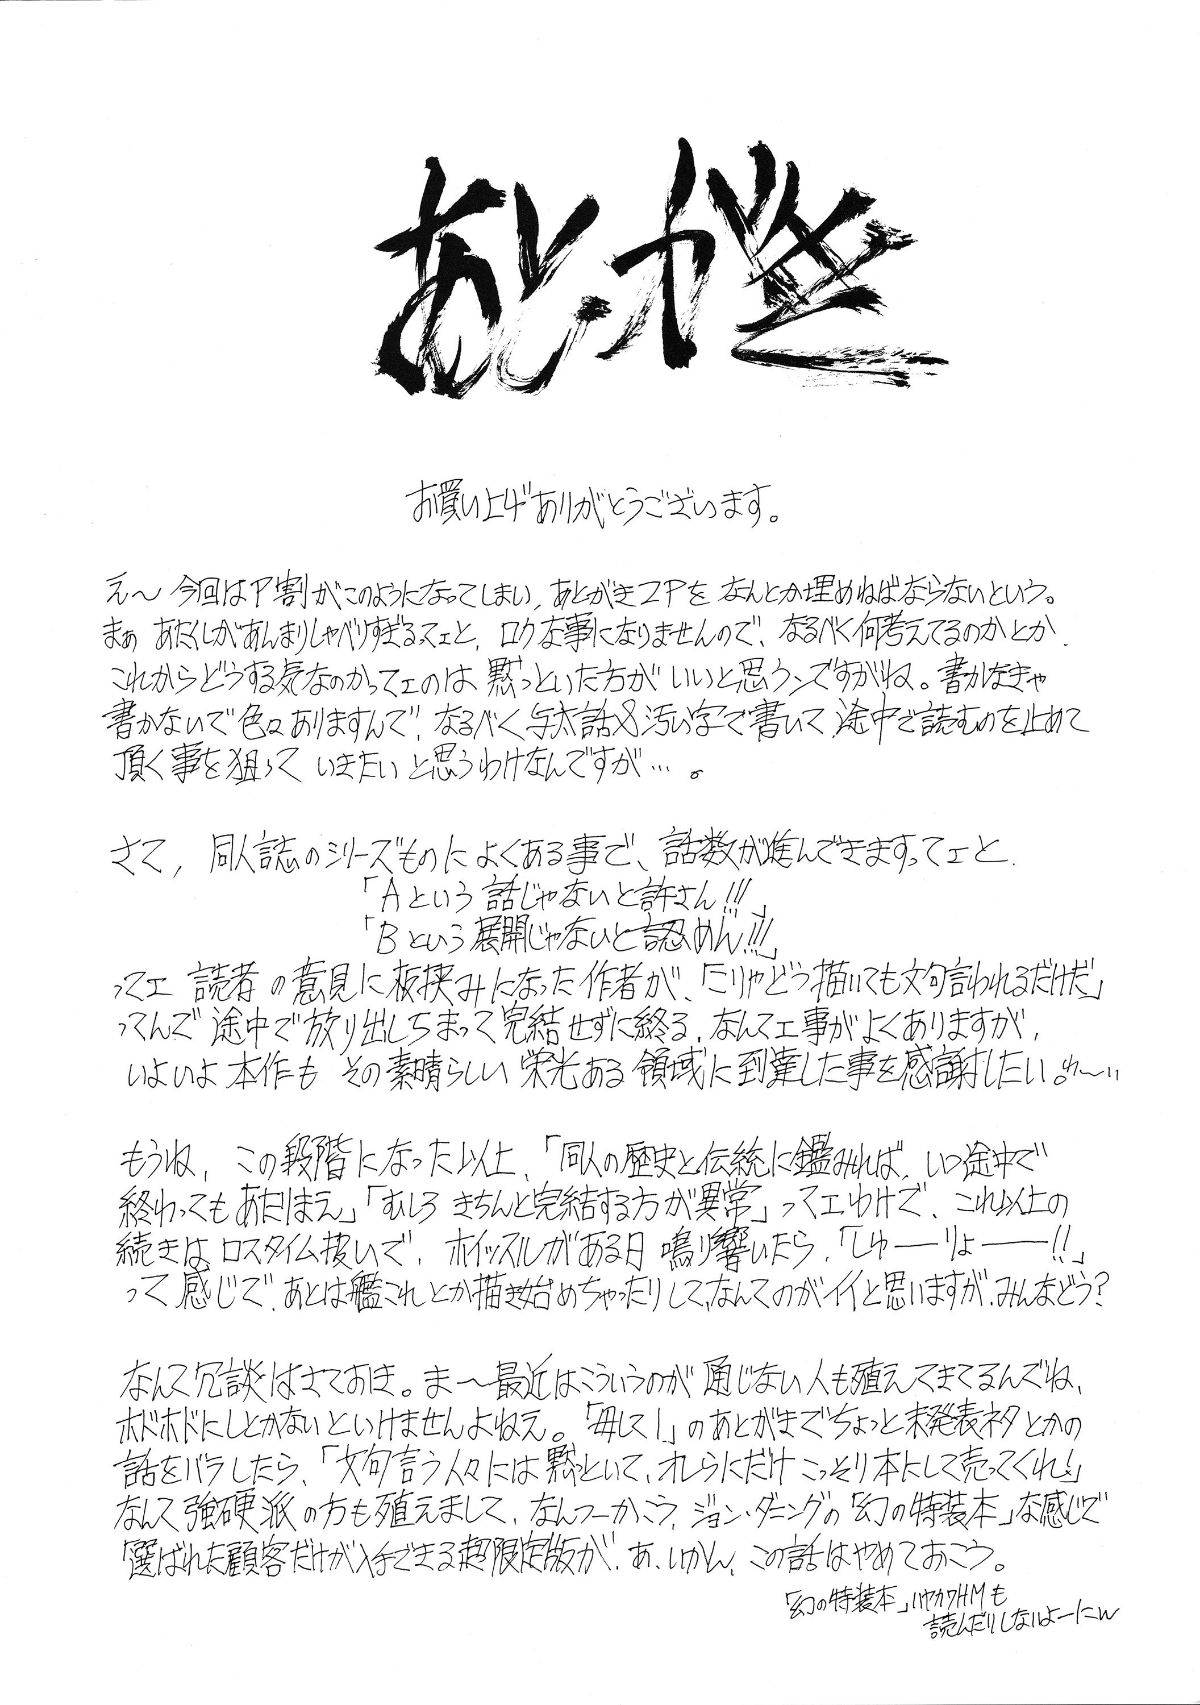 あとがき
お買い上げありがとうございます。
え〜今回はP割がこのようになってしまい、あとがき2Pをなんとか埋めねばならないという。
まぁ あたくしがあんまりしゃべりすぎるってェと、ロクな事になりませんので、なるべく何考えてるのかとか、
これからどうする気なのかってェのは黙っといた方がいいと思うンですがね。書かなきゃ
書かないで色々ありますんで、なるべく与太話&汚い字で書いて途中で読むのを止めて
頂く事を狙っていきたいと思うわけなんですが…。
さて、同人誌のシリーズものによくある事で、話数が進んできますってェと、
「Aという話じゃないと許さん!!!」
「Bという展開じゃないと認めん!!!」
ってェ読者の意見に板挟みになった作者が、「こりゃどう描いても文句言われるだけだ」
ってんで途中で放り出しちまって完結せずに終る、なんてェ事がよくありますが、
いよいよ本作もその素晴らしい栄光ある領域に到達した事を感謝したい。わ〜い
もうね、この段階になった以上、「同人の歴史と伝統に鑑みれば、いつ途中で
終わってもあたりまえ」「むしろきちんと完結する方が異常」ってェわけで、これ以上の
続きはロスタイム扱いで、ホイッスルがある日鳴り響いたら、「しゅーりょーー!!」
って感じで、あとは艦これとか描き始めちゃったりして、なんてのがイイと思いますが、みんなどう?
なんて冗談はさておき。ま〜最近はこういうのが通じない人も殖えてきてるんでね、
ホドホドにしとかないといけませんよねえ。「毎して1」のあとがきでちょっと未発表ネタとかの
話をバラしたら、「文句言う人々には黙っといて、オレらにだけこっそり本にして売ってくれ!」
なんて強硬派の方も殖えまして、なんつーかこう、ジョン・ダニングの「幻の特装本」な感じで
「選ばれた顧客だけが入手できる超限定版が、あ、いかん、この話はやめておこう。
「幻の特装本」ハヤカワHMも
読んだりしないよーにw